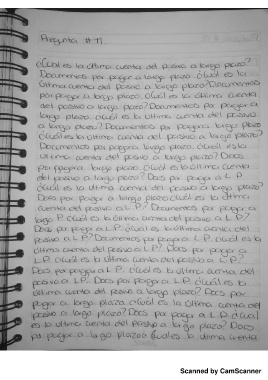 Pregunta # 71
¿Cuál es la última cuenta del pasivo a largo plazo?
Documentos por pagar a largo plazo. ¿Cuál es la
última cuenta del pasivo a largo plazo? Documentos
por pagar a largo plazo. ¿Cuál es la última cuenta
del pasivo a largo plazo? Documentos por pagar a
largo plazo. ¿Cuál es la última cuenta del pasivo
a largo plazo? Documentos por pagar a largo plazo
¿Cuál es la última cuenta del pasivo a largo plazo?
Documentos por pagar a largo plazo. ¿Cuál es la
última cuenta del pasivo a largo plazo? Docs
por pagar a largo plazo. ¿Cuál es la última cuenta
del pasivo a largo plazo? Docs por pagar a L.P.
¿Cuál es la última cuenta del pasivo a largo plazo?
Docs por pagar a largo plazo. ¿Cuál es la última
cuenta del pasivo a L.P.? Documentos por pagar a
largo P. ¿Cuál es la última cuenta del pasivo a L.P.?
Docs por pagar a L.P. ¿Cuál es la última cuenta del
pasivo a L.P.? Documentos por pagar a L.P. ¿Cuál es la
última cuenta del pasivo a L.P.? Docs por pagar a
L.P. ¿Cuál es la última cuenta del pasivo a L.P.?
Docs por pagar a L.P. ¿Cuál es la última cuenta del
pasivo a L.P. Docs por pagar a L.P. ¿Cuál es la
última cuenta del pasivo a largo plazo? Docs por
pagar a largo plazo. ¿Cuál es la última cuenta del
pasivo a largo plazo? Docs por pagar a L.P. ¿Cuál
es la última cuenta del pasivo a largo plazo? Docs
por pagar a largo plazo. ¿Cuál es la última cuenta
Scanned by CamScanner